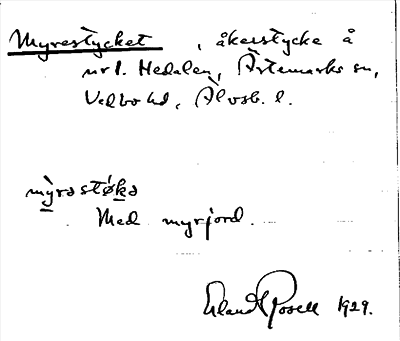 Myrestycket, åkerstycke å
nr 1. Hedalen, Ärtemarks sn,
Vedbo hd, Älvsb. l.
myrastøka
Med myrjord.
Erland Rosell 1929.